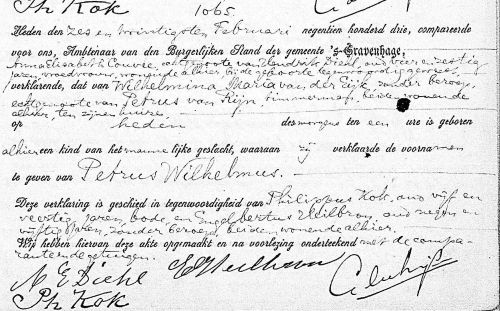 Ph Kok
1065
Heden den zes en twintigsten Februari negentien honderd drie, compareerde
voor ons, Ambtenaar van den Burgerlijken Stand der gemeente 's-Gravenhage,
Anna Elisabeth Couvée, echtgenoote van Hendrik Diehl, oud vier en zestig
jaren, vroedvrouw, wonende alhier, bij de geboorte tegenwoordig geweest,
verklarende, dat van Wilhelmina Maria van der Eijk, zonder beroep,
echtgenoote van Petrus van Rijn, timmerman, beiden wonende
alhier, ten zijnen huize,
op heden des morgens ten een ure is geboren
alhier een kind van het mannelijke geslacht, waaraan zij verklaarde de voornamen
te geven van Petrus Wilhelmus.
Deze verklaring is geschied in tegenwoordigheid van Philippus Kok, oud vijf en
veertig jaren, bode, en Engelbertus Heilbron, oud negen en
vijftig jaren, zonder beroep, beiden wonende alhier.
Wij hebben hiervan deze akte opgemaakt en na voorlezing onderteekend met de compa-
rante en de getuigen.
A E Diehl
Ph Kok